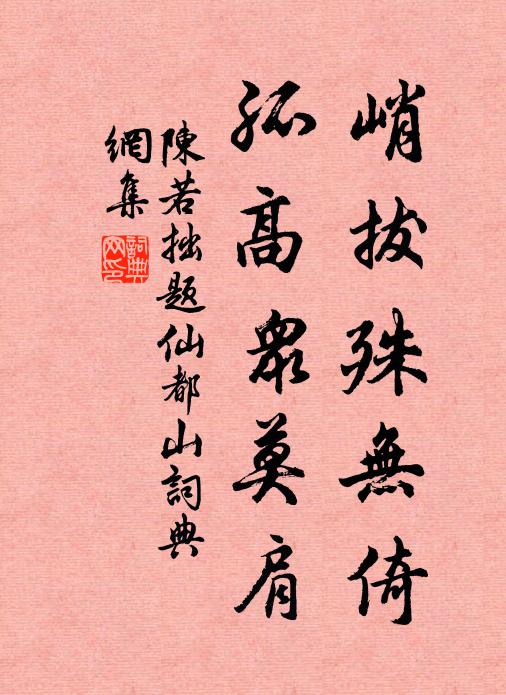 峭拔殊無倚
孤高眾莫肩
陳若拙題仙都山詞典
網集
詞典網印